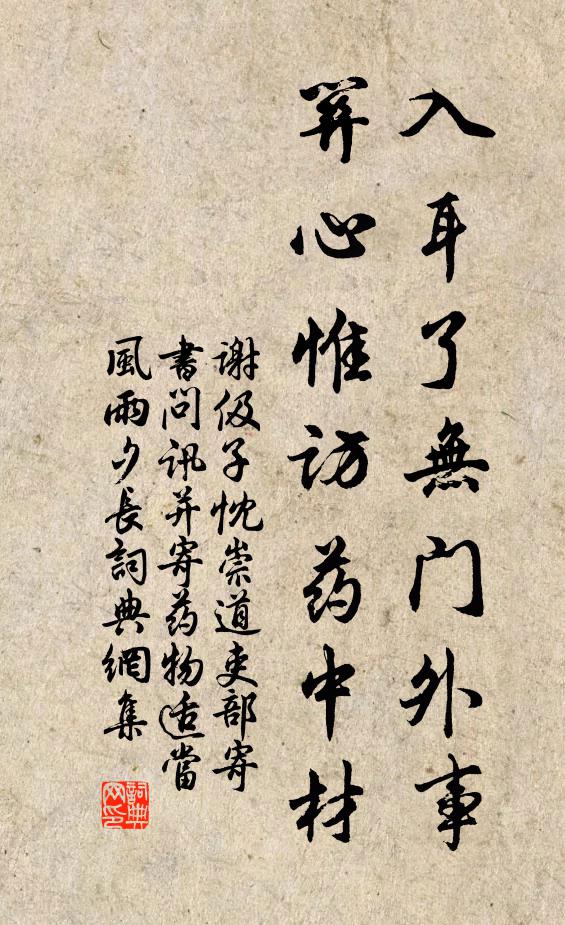 入耳了無门外事
関心惟访药中材
谢伋子忱崇道吏部寄
書问讯并寄药物适當
風雨夕長詞典網集
詞典网印